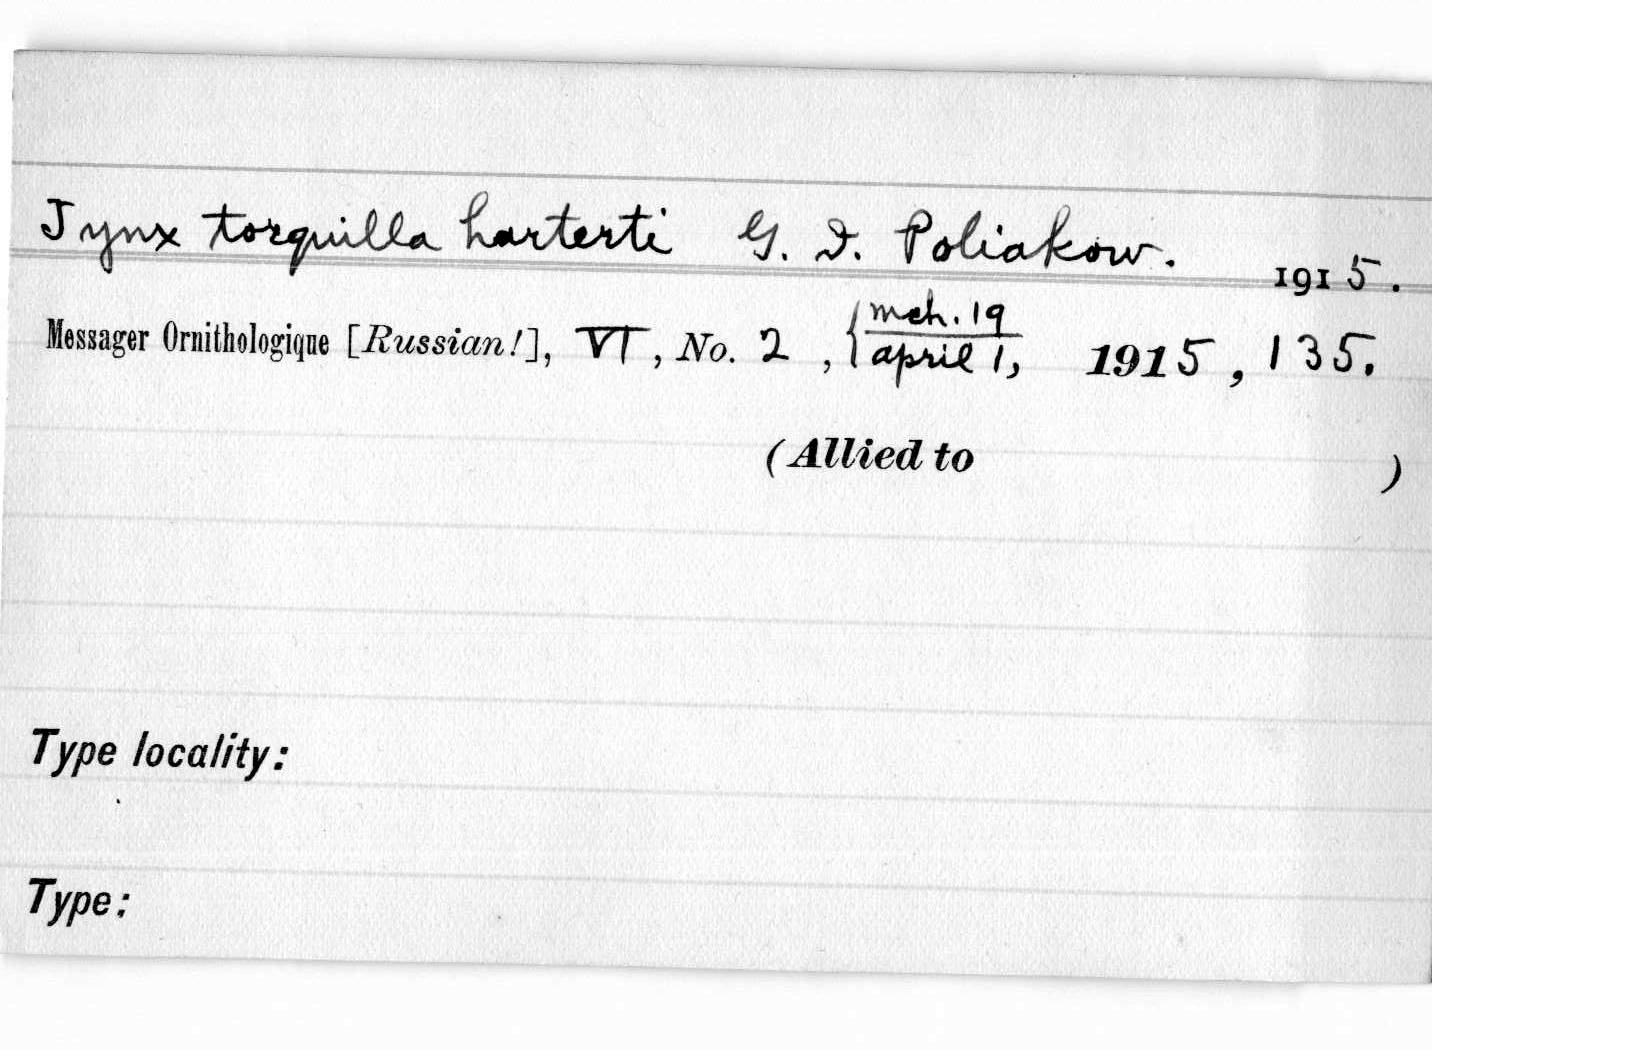 Jynx torquilla harterti G. I. Poliakow. 1915.
Messager Ornithologique [Russian!], VI, No. 2, { mch. 19 / april 1, 1915, 135.
(Allied to )
Type locality:
Type: